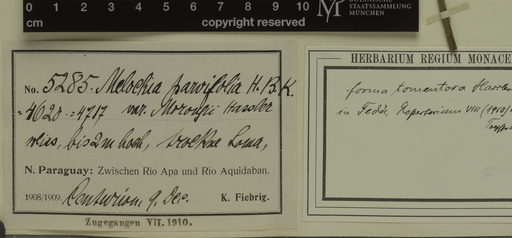 0 1 2 3 4 5 6 7 8 9 10
cm copyright reserved
STAATSSAMMLUNG
MÜNCHEN
No. 5285. Melochia parvifolia H.B.K.
=4620.=4717 var. Morongii Hassler
weiss, bis 2 m hoch, trockne Loma,
N. Paraguay: Zwischen Rio Apa und Rio Aquidaban.
1908/1909. Centurion, 9. Dec. K. Fiebrig.
Zugegangen VII. 1910.
HERBARIUM REGIUM MONACE
forma tomentosa Hassler
in Fedde, Repertorium VIII (1910)